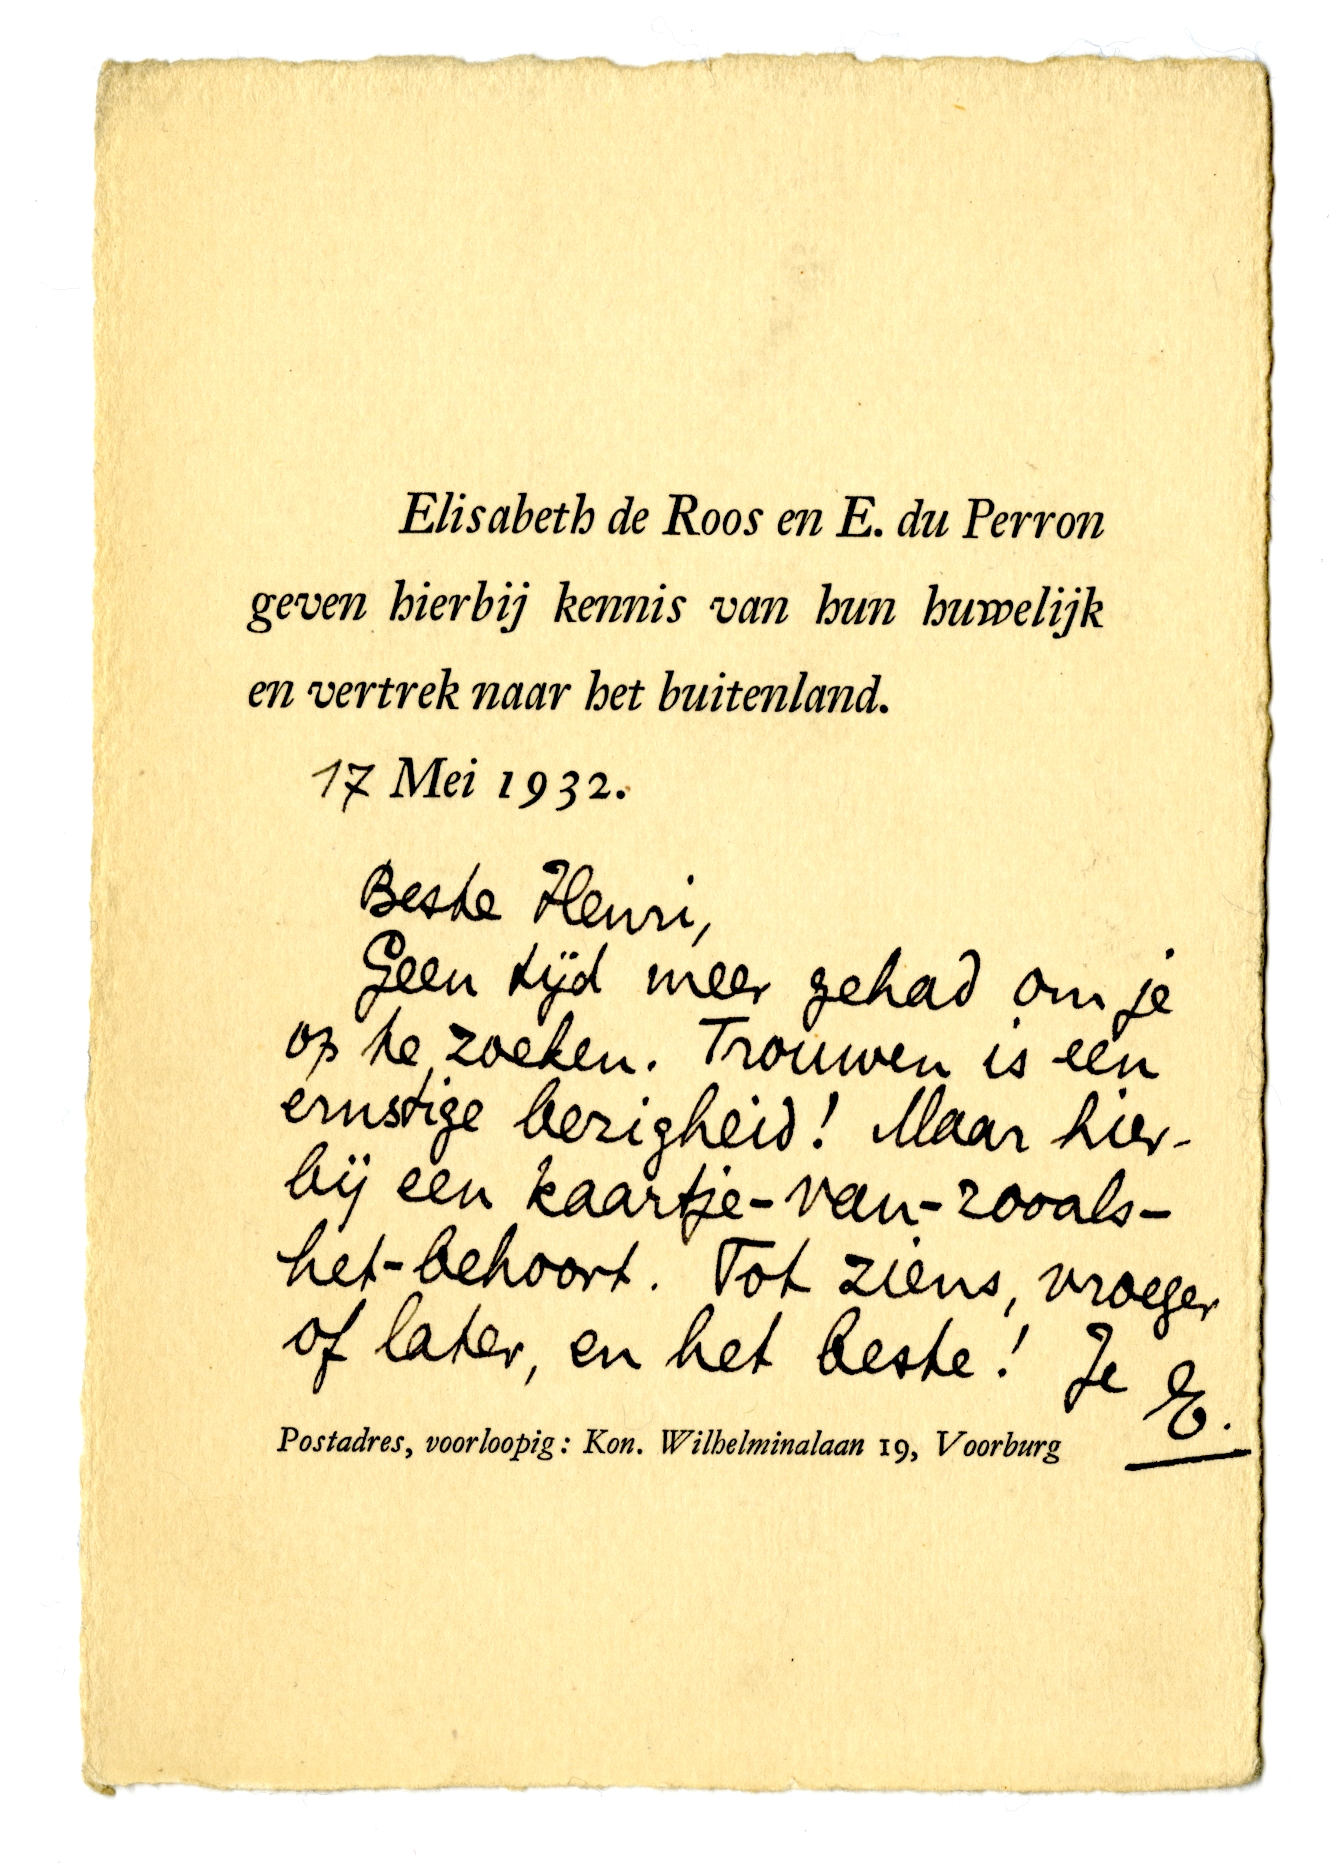 Elisabeth de Roos en E. du Perron
geven hierbij kennis van hun huwelijk
en vertrek naar het buitenland.
17 Mei 1932.
Beste Henri,
Geen tijd meer gehad om je
op te zoeken. Trouwen is een
ernstige bezigheid! Maar hier-
bij een kaartje-van-zooals-
het-behoort. Tot ziens, vroeger
of later, en het beste! Je
E.
Postadres, voorloopig: Kon. Wilhelminalaan 19, Voorburg